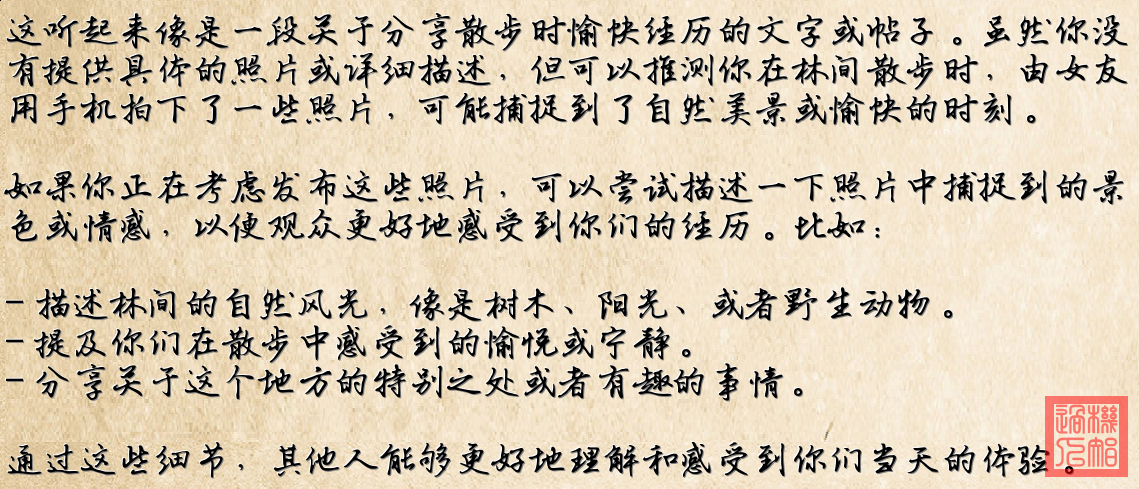 这听起来像是一段关于分享散步时愉快经历的文字或帖子。虽然你没
有提供具体的照片或详细描述，但可以推测你在林间散步时，由女友
用手机拍下了一些照片，可能捕捉到了自然美景或愉快的时刻。
如果你正在考虑发布这些照片，可以尝试描述一下照片中捕捉到的景
色或情感，以便观众更好地感受到你们的经历。比如：
- 描述林间的自然风光，像是树木、阳光、或者野生动物。
- 提及你们在散步中感受到的愉悦或宁静。
- 分享关于这个地方的特别之处或者有趣的事情。
通过这些细节，其他人能够更好地理解和感受到你们当天的体验。